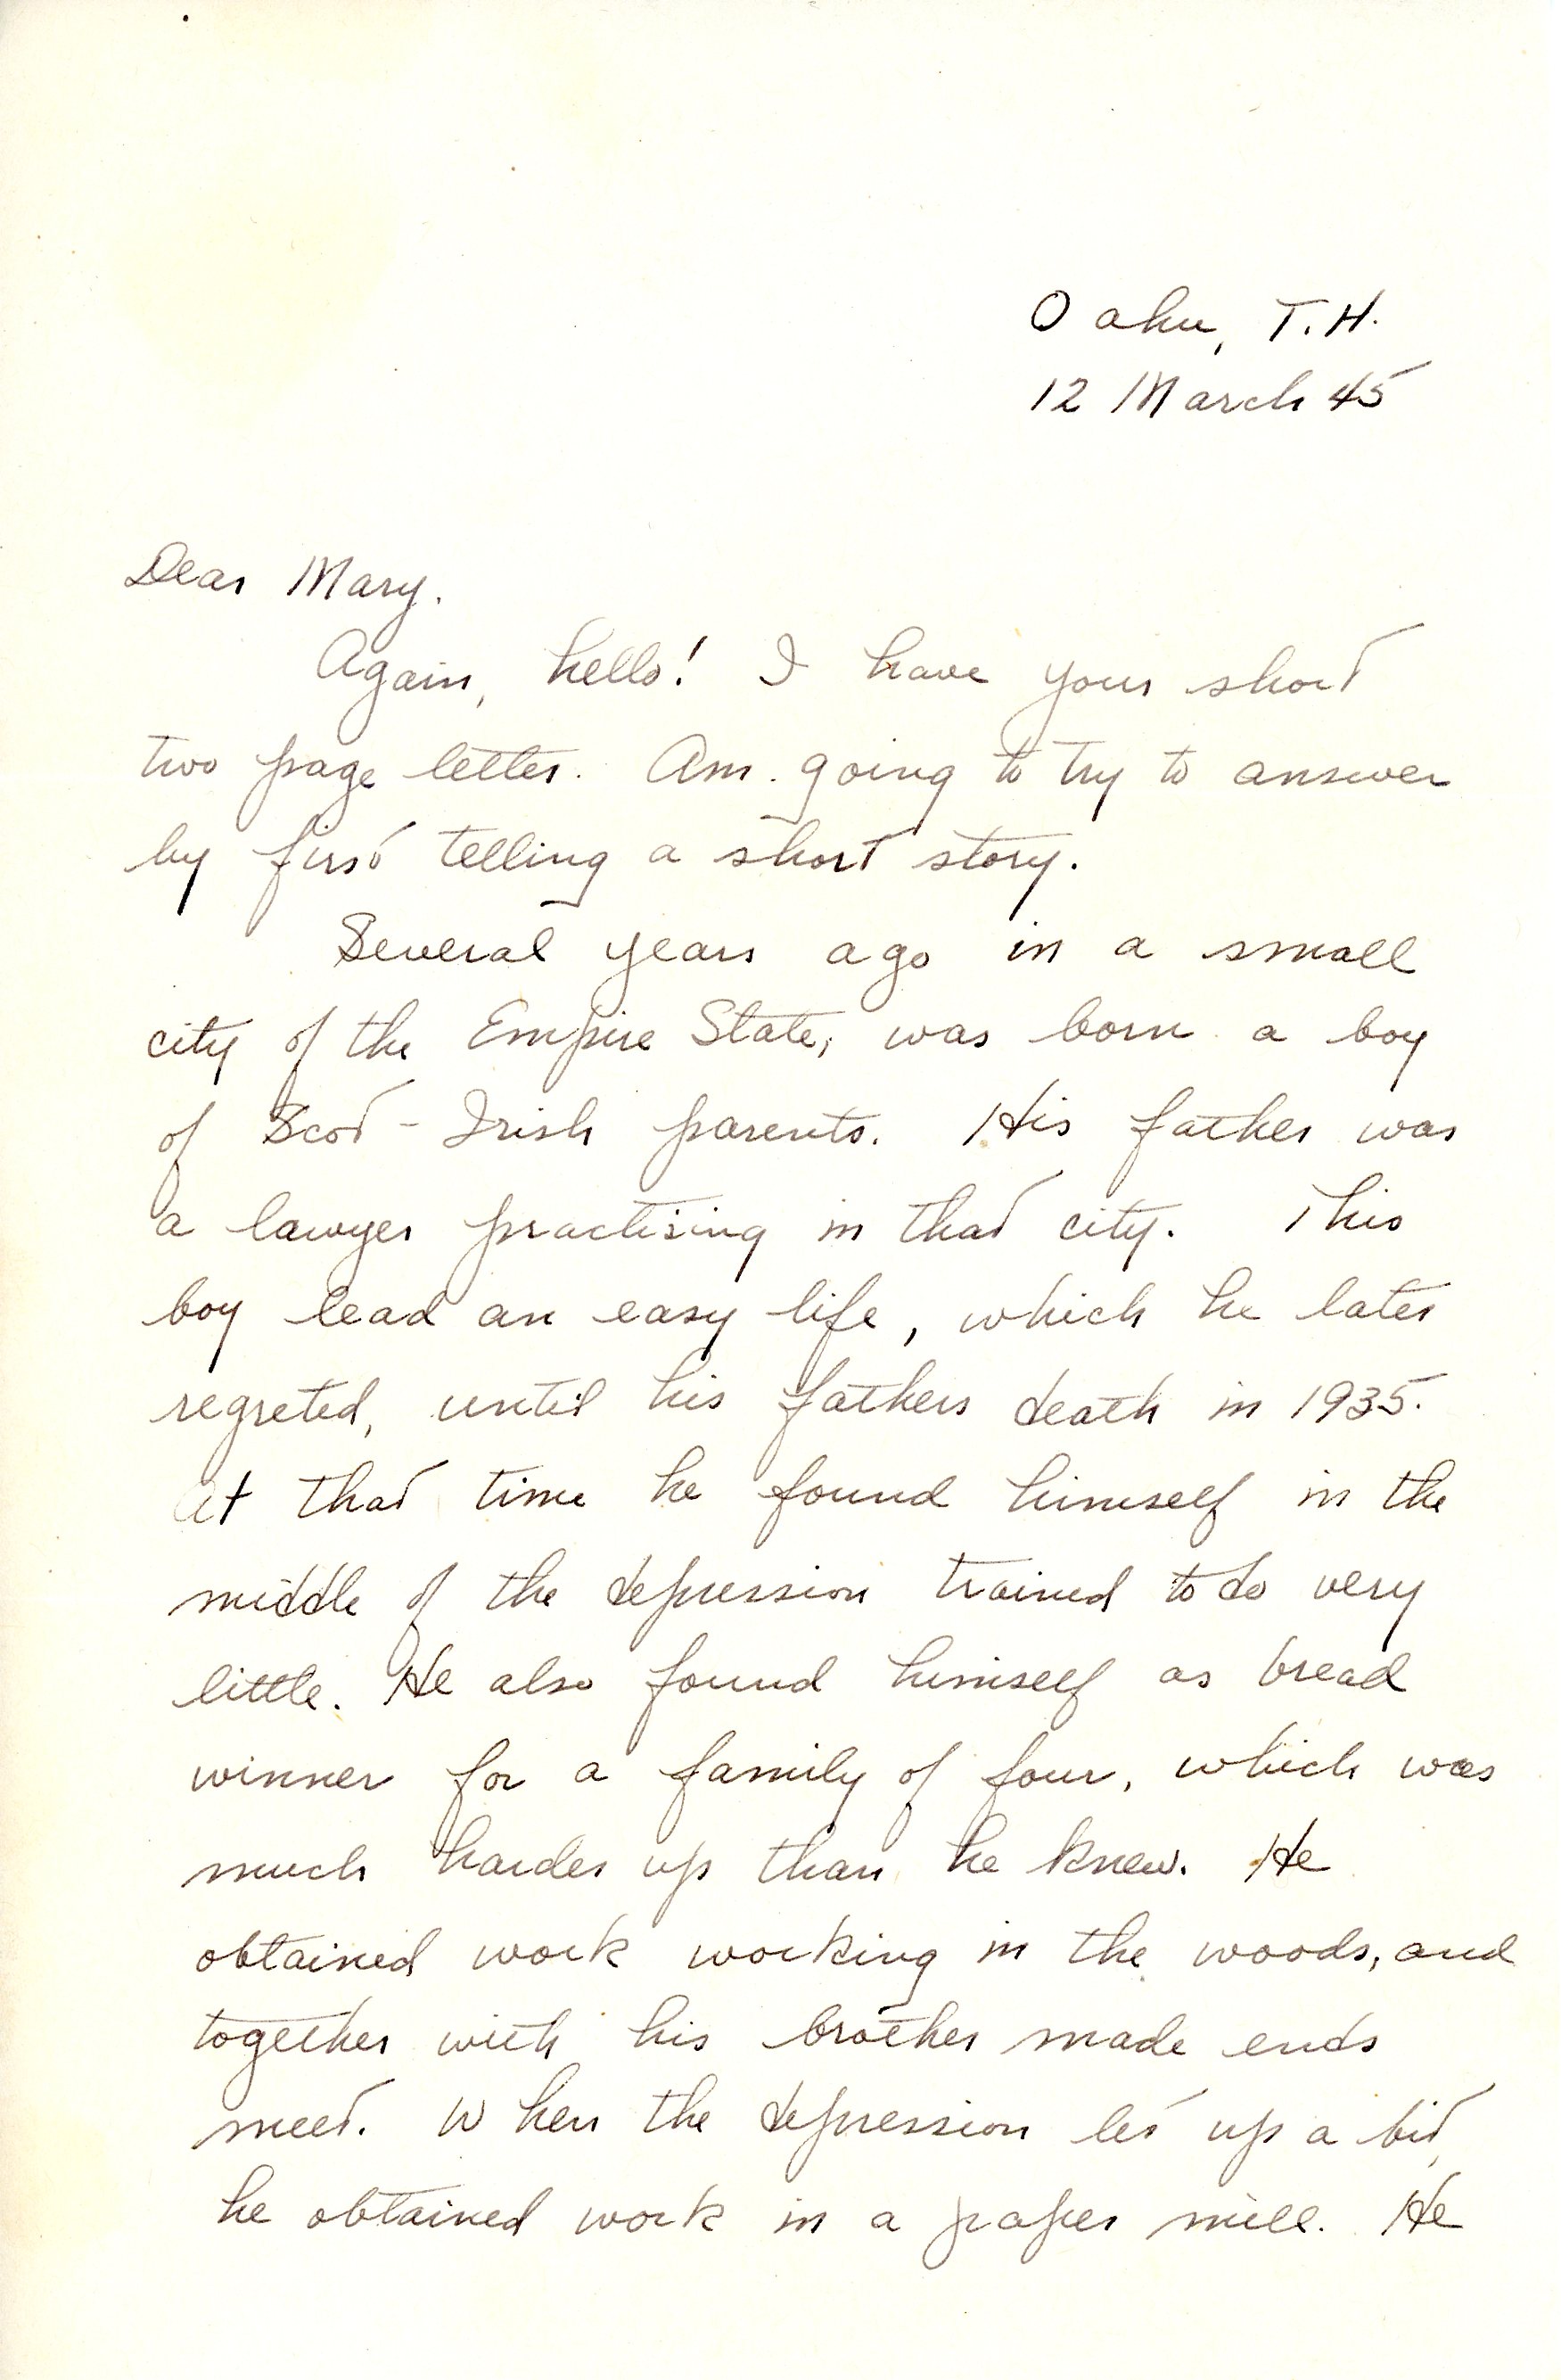 Oahu, T.H.
12 March 45
Dear Mary.
Again, hello! I have your short
two page letter. Am going to try to answer
by first telling a short story.
Several years ago in a small
city of the Empire State, was born a boy
of Scot-Irish parents. His father was
a lawyer practising in that city. This
boy lead an easy life, which he later
regreted, until his fathers death in 1935.
At that time he found himself in the
middle of the depression trained to do very
little. He also found himself as bread
winner for a family of four, which was
much harder up than he knew. He
obtained work working in the woods, and
together with his brother made ends
meet. When the depression let up a bit,
he obtained work in a paper mill. He